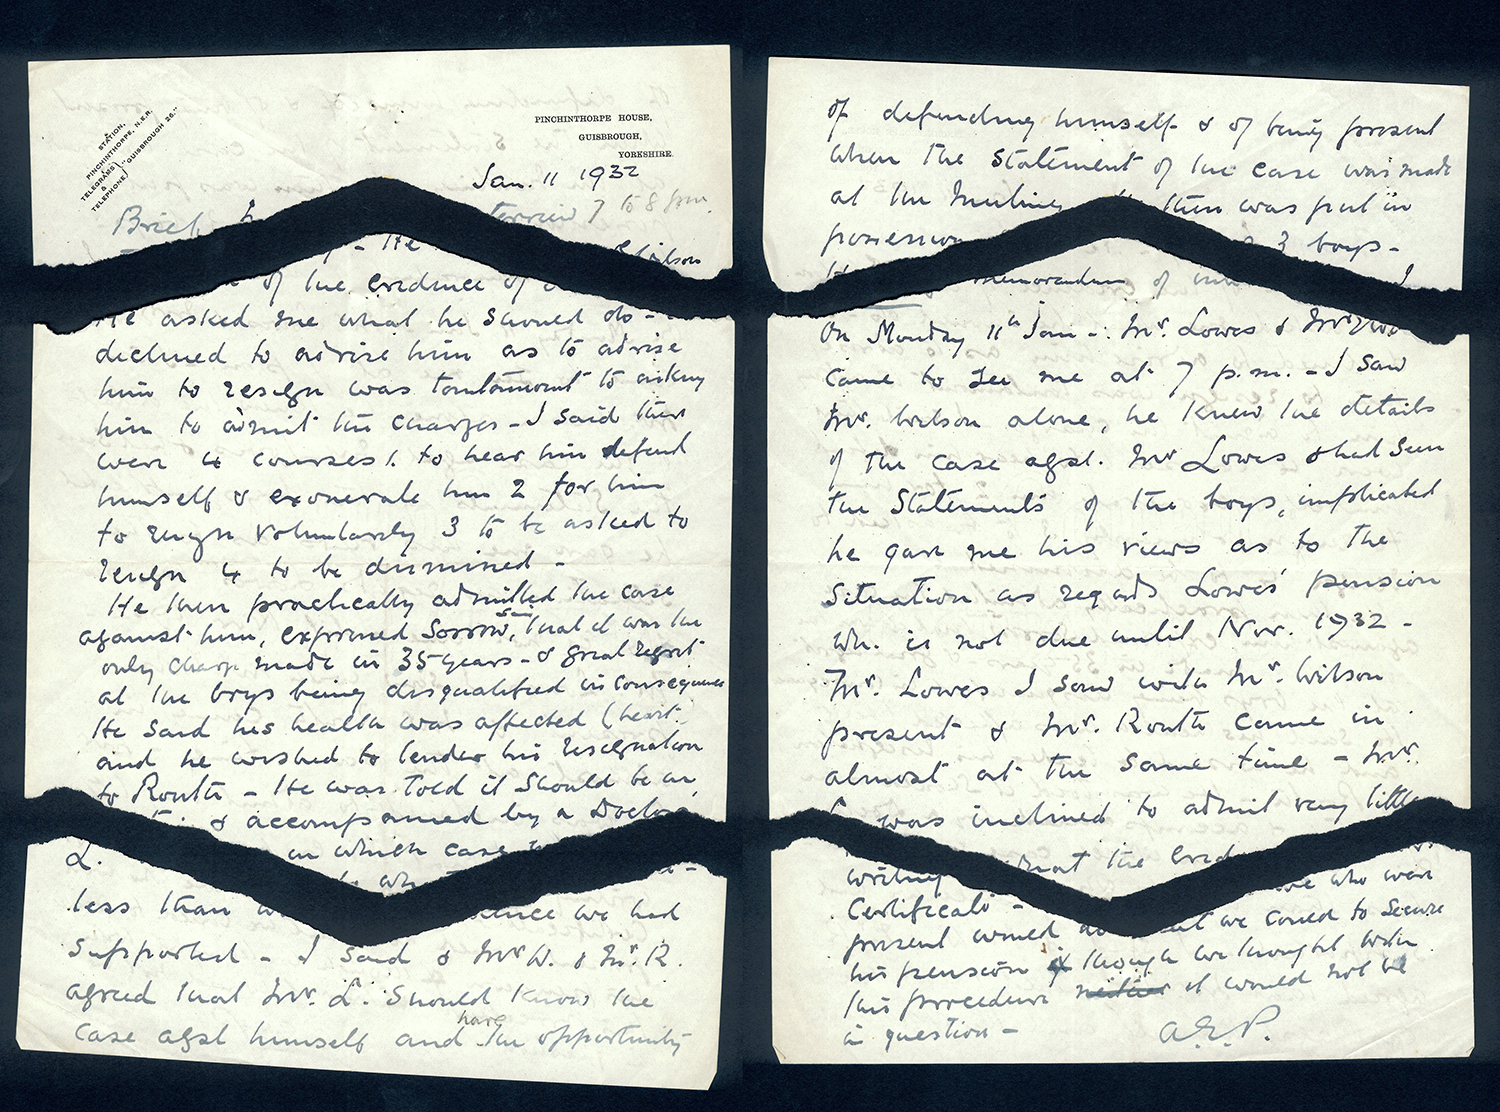 STATION,
PINCHINTHORPE, N.E.R.
TELEGRAMS
&
TELEPHONE
"GUISBROUGH 26."
PINCHINTHORPE HOUSE,
GUISBROUGH,
YORKSHIRE.
Jan. 11 1932
Brief 7 to 8 p.m.
He
of the evidence of
He asked me what he should do -
declined to advise him as to advise
him to resign was tantamount to asking
him to admit the charges - I said there
were 4 courses 1. to hear him defend
himself & exonerate him 2 for him
to resign voluntarily 3 to be asked to
resign 4 to be dismissed -
He then practically admitted the case
against him, expressed sorrow, that it was the
only charge made in 35 years - & great regret
at the boys being disqualified in consequence
He said his health was affected (heart
and he wished to tender his resignation
to Routh - He was told it should be in
& accompanied by a Doctor
L.
in which case
less than we had
supported - I said & Mr W. & Mr. R.
agreed that Mr. L. should know the
case agst himself and have the opportunity
of defending himself & of being present
when the statement of the case was made
at the Meeting then was put in
3 boys -
memorandum of
On Monday 11th Jan - Mr. Lowes & Mr
came to see me at 7 p.m. - I saw
Mr. Wilson alone, he knew the details
of the case agst. Mr Lowes & had seen
the statements of the boys, implicated
he gave me his views as to the
situation as regards Lowes' pension
wh. is not due until Nov. 1932 -
Mr. Lowes I saw with Mr. Wilson
present & Mr. Routh came in
almost at the same time - Mr.
was inclined to admit very little
writing that the
Certificate - who were
present would we could to secure
his pension though we thought with
this procedure it would not be
in question -
A.E.P.